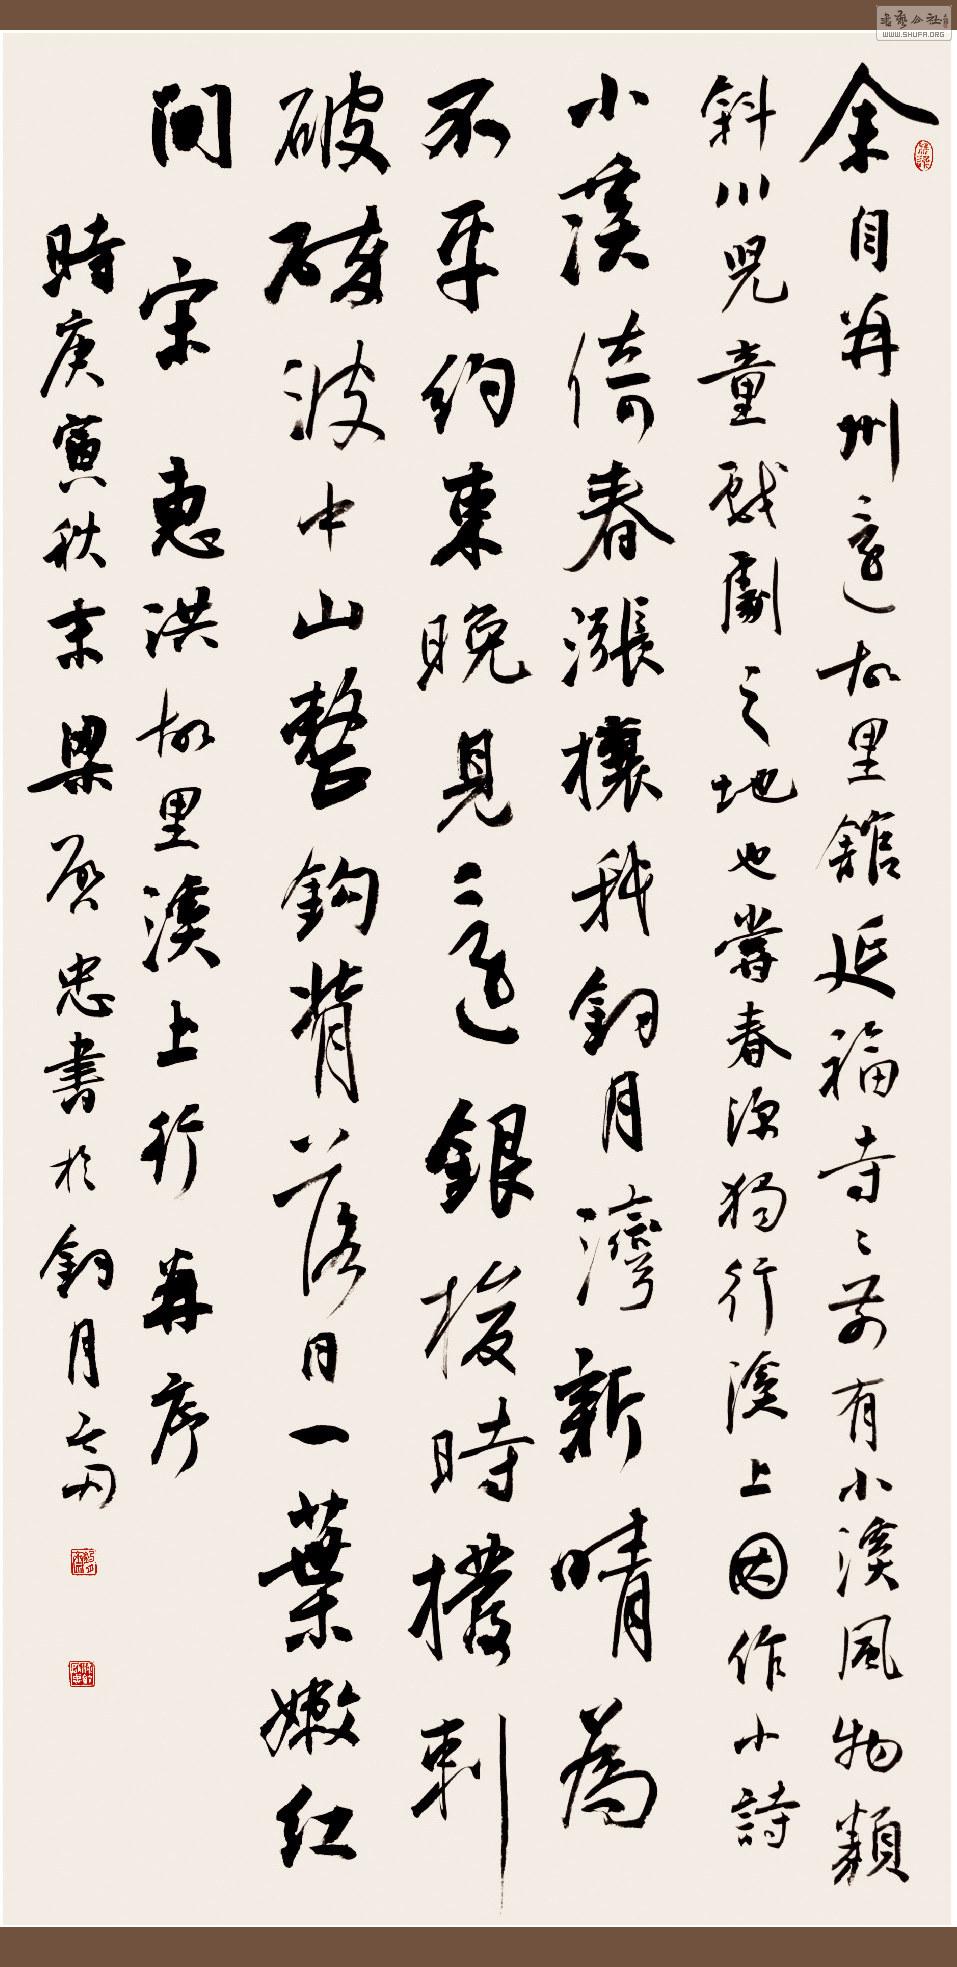 余自并州還故里館延福寺〻前有小溪風物類
斜川兒童戲劇之地也嘗春深獨行溪上因作小詩
小溪倚春漲攘我釣月灣新晴為
不平約束晚見還銀梭時撥剌
破碎波中山整鈎背落日一葉嫩紅
间 宋 惠洪故里溪上行并序
時庚寅秋末梁啟忠書於釣月齋
WWW.SHUFA.ORG